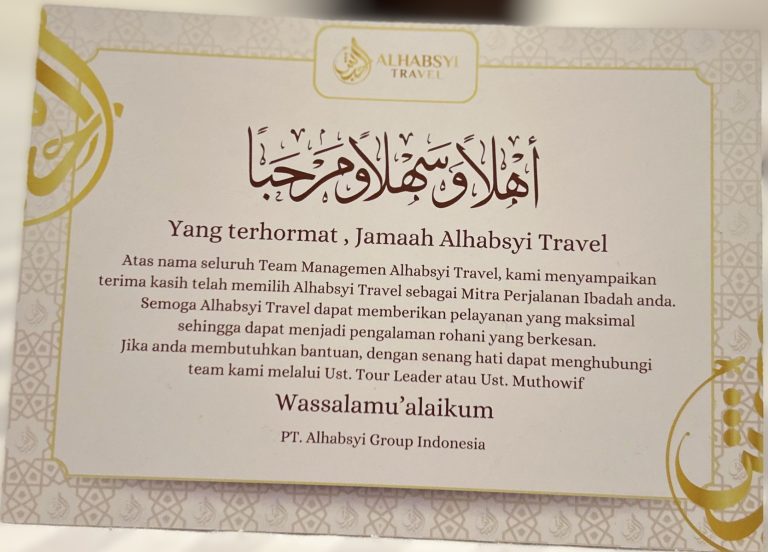 ALHABSYI
TRAVEL
أَهْلاً وَسَهْلاً وَمَرْحَبًا
Yang terhormat , Jamaah Alhabsyi Travel
Atas nama seluruh Team Managemen Alhabsyi Travel, kami menyampaikan
terima kasih telah memilih Alhabsyi Travel sebagai Mitra Perjalanan Ibadah anda.
Semoga Alhabsyi Travel dapat memberikan pelayanan yang maksimal
sehingga dapat menjadi pengalaman rohani yang berkesan.
Jika anda membutuhkan bantuan, dengan senang hati dapat menghubungi
team kami melalui Ust. Tour Leader atau Ust. Muthowif
Wassalamu’alaikum
PT. Alhabsyi Group Indonesia